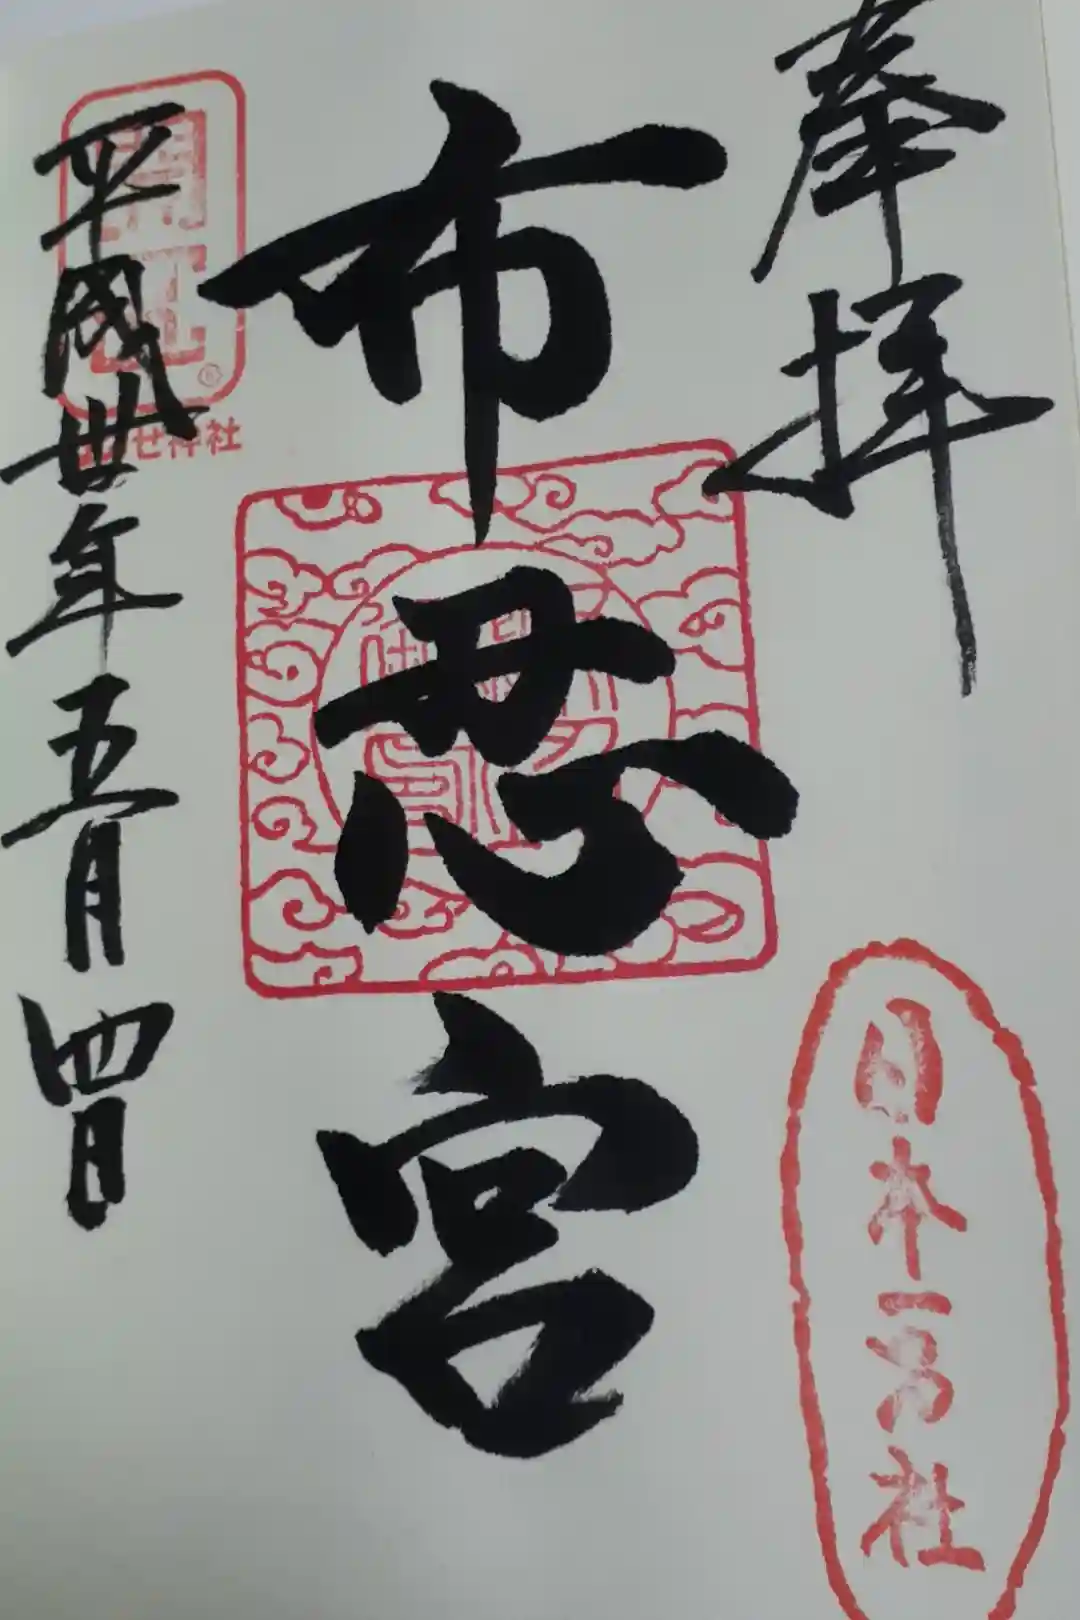 奉拝
日本一万社
布忍宮
平成丗年五月四日
せ神社